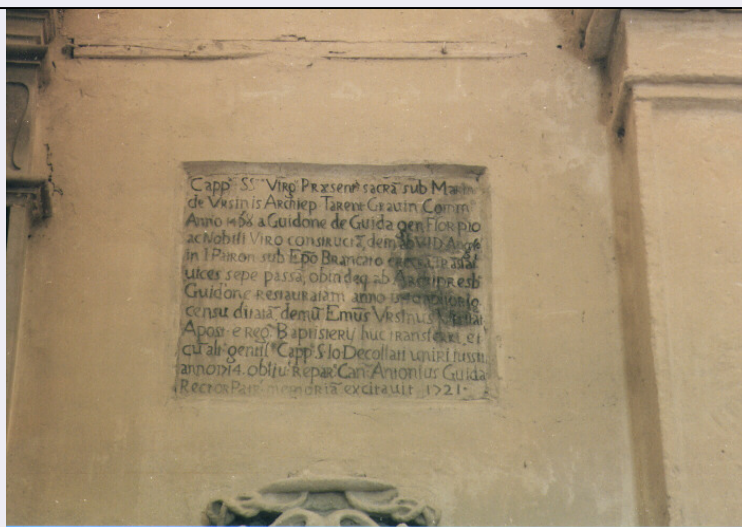 Capp. SS. Virg. Præsent sacrā sub Marin
de Ursinis Archiep Tarent Gravin Comm
Anno 14 a Guidone de Guida gen Flor pio
ac Nobili Viro constructā, dem ab
in I Patron sub Epo Brancato
vices sepe passā, obindeq ab Archipresb
Guidone restauratam anno
censu ditatā demū Emus Ursinus
Apost e reg Baptisterii huc transferri et
cū ali gentil Capp S Io Decollati uniri iussit
anno 1714 obliu Repar Can Antonius Guida
Rector Patr memoriā excitavit 1721